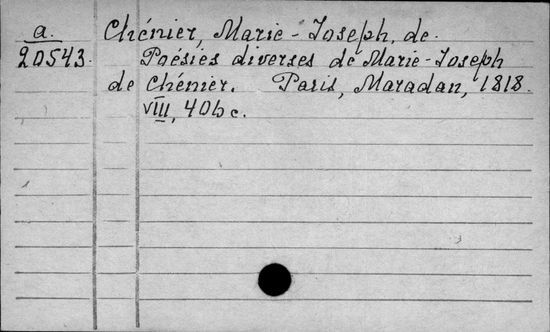 a.
20543.
Chénier, Marie-Joseph, de.
Poésies diverses de Marie-Joseph
de Chénier. Paris, Maradan, 1818.
VIII, 406 c.